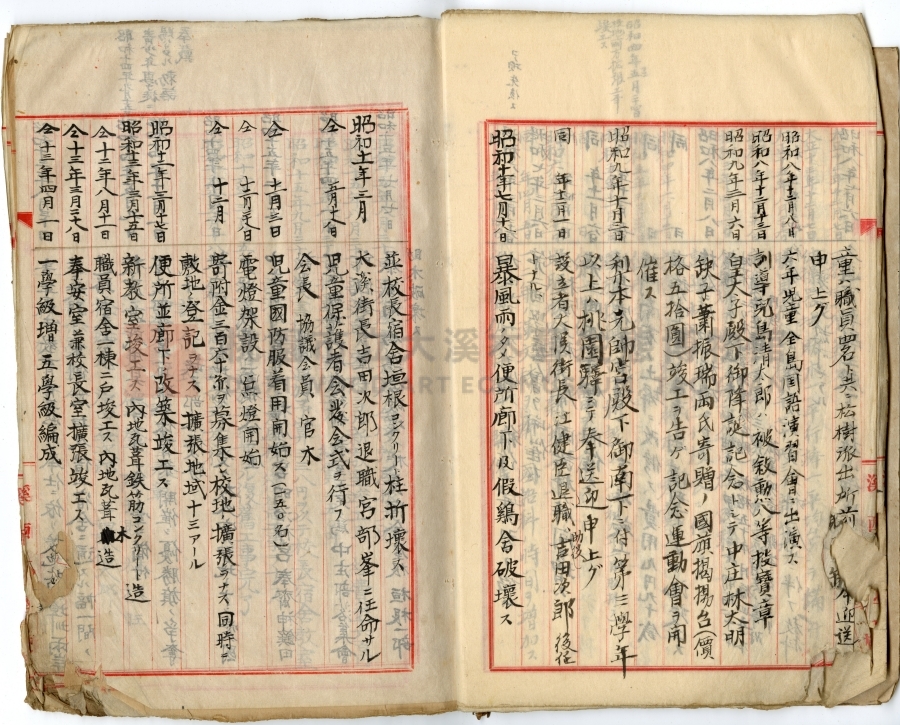 童ハ職員署ト共ニ松樹派出所前 迎送
申上グ
昭和八年十二月八日 六年児童全島国語演習會ニ出演ス
昭和八年十二月十三日 訓導児島清八郎ハ被敍勲八等授寶章
昭和九年二月六日 皇太子殿下御降誕記念トシテ中庄林太明
缺子蕭振瑞両氏寄贈ノ國旗掲揚台(價
格五拾圓)竣工ヲ告ゲ記念運動會ヲ開
催ス
昭和九年十月三日 利本元帥宮殿下御南下ニ付第三學年
以上ハ桃園驛ニテ奉送迎申上グ
同 年十二月一日 設立者大溪街長江健臣退職 吉田次郎後任
トナル
昭和十年七月十八日 暴風雨ノタメ便所廊下及假鶏舍破壞ス
並校長宿舍垣根コンクリート柱折壞ス
昭和十一年三月 大溪街長吉田次郎退職宮部峯ニ任命サル
仝 五月十八日 児童保護者会発会式ヲ行フ
会長 協議会員 官木
仝 十一月三日 児童國防服着用開始ス(一五〇名)
仝 十二月二十八日 電燈架設 点燈開始
仝 十二月 寄附金三百六十余ヲ募集シ校地擴張ヲナス同時ニ
敷地登記ヲナス 擴張地域十三アール
昭和十二年三月十七日 便所並廊下改築竣工ス
昭和十三年三月十五日 新教室竣工ス 内地瓦葺鉄筋コンクリート造
仝十二年八月十一日 職員宿舍一棟二戸竣工ス 内地瓦葺木造
仝十三年三月二十八日 奉安室兼校長室擴張竣工ス
仝十三年四月一日 一學級増 五學級編成